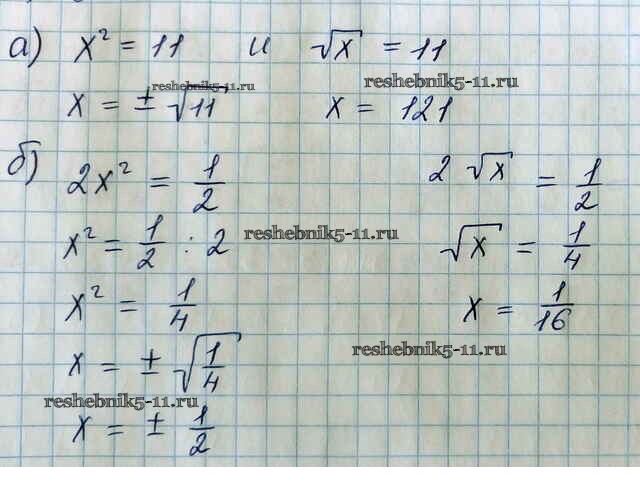 а) x² = 11 и √x = 11
reshebnik5-11.ru
reshebnik5-11.ru
x = ± √11 x = 121
б) 2x² = 1/2 2 √x = 1/2
x² = 1/2 : 2 √x = 1/4
reshebnik5-11.ru
x² = 1/4 x = 1/16
x = ± √1/4
reshebnik5-11.ru
reshebnik5-11.ru
x = ± 1/2